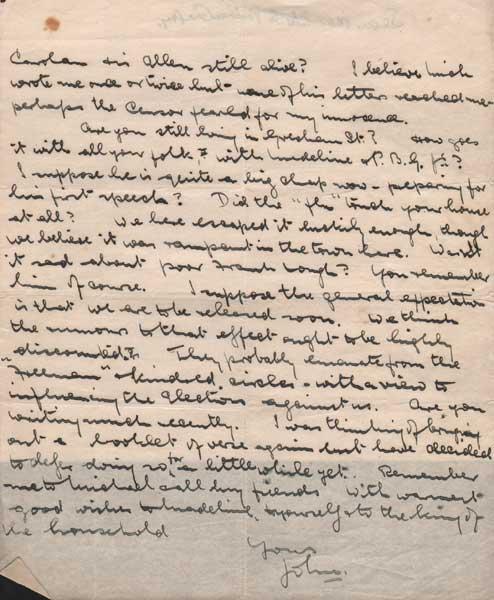 his Allen still alive? I believe Mick
wrote me once or twice but none of his letters reached me
perhaps the Censor feared for my innocence.
Are you still living in Gresham St? How goes
it with all your folk & with Madeline & P.B.G. Jr?
I suppose he is quite a big chap now - preparing for
his first speech? Did the "flu" touch your house
at all? We here escaped it luckily enough though
we believe it was rampant in the town here. Wasn't
it sad about poor Frank? You remember
him of course. I suppose the general expectation
is that we are to be released soon. We think
the rumours to that effect ought to be highly
discounted. They probably emanate from the
"Freeman" & kindred circles - with a view to
influencing the Elections against us. Are you
writing much recently. I was thinking of bringing
out a booklet of verse again but have decided
to defer doing so for a little while yet. Remember
me to Michael & all my friends. With warmest
good wishes to Madeline, to yourself & to the king of
the household
Yours
John.